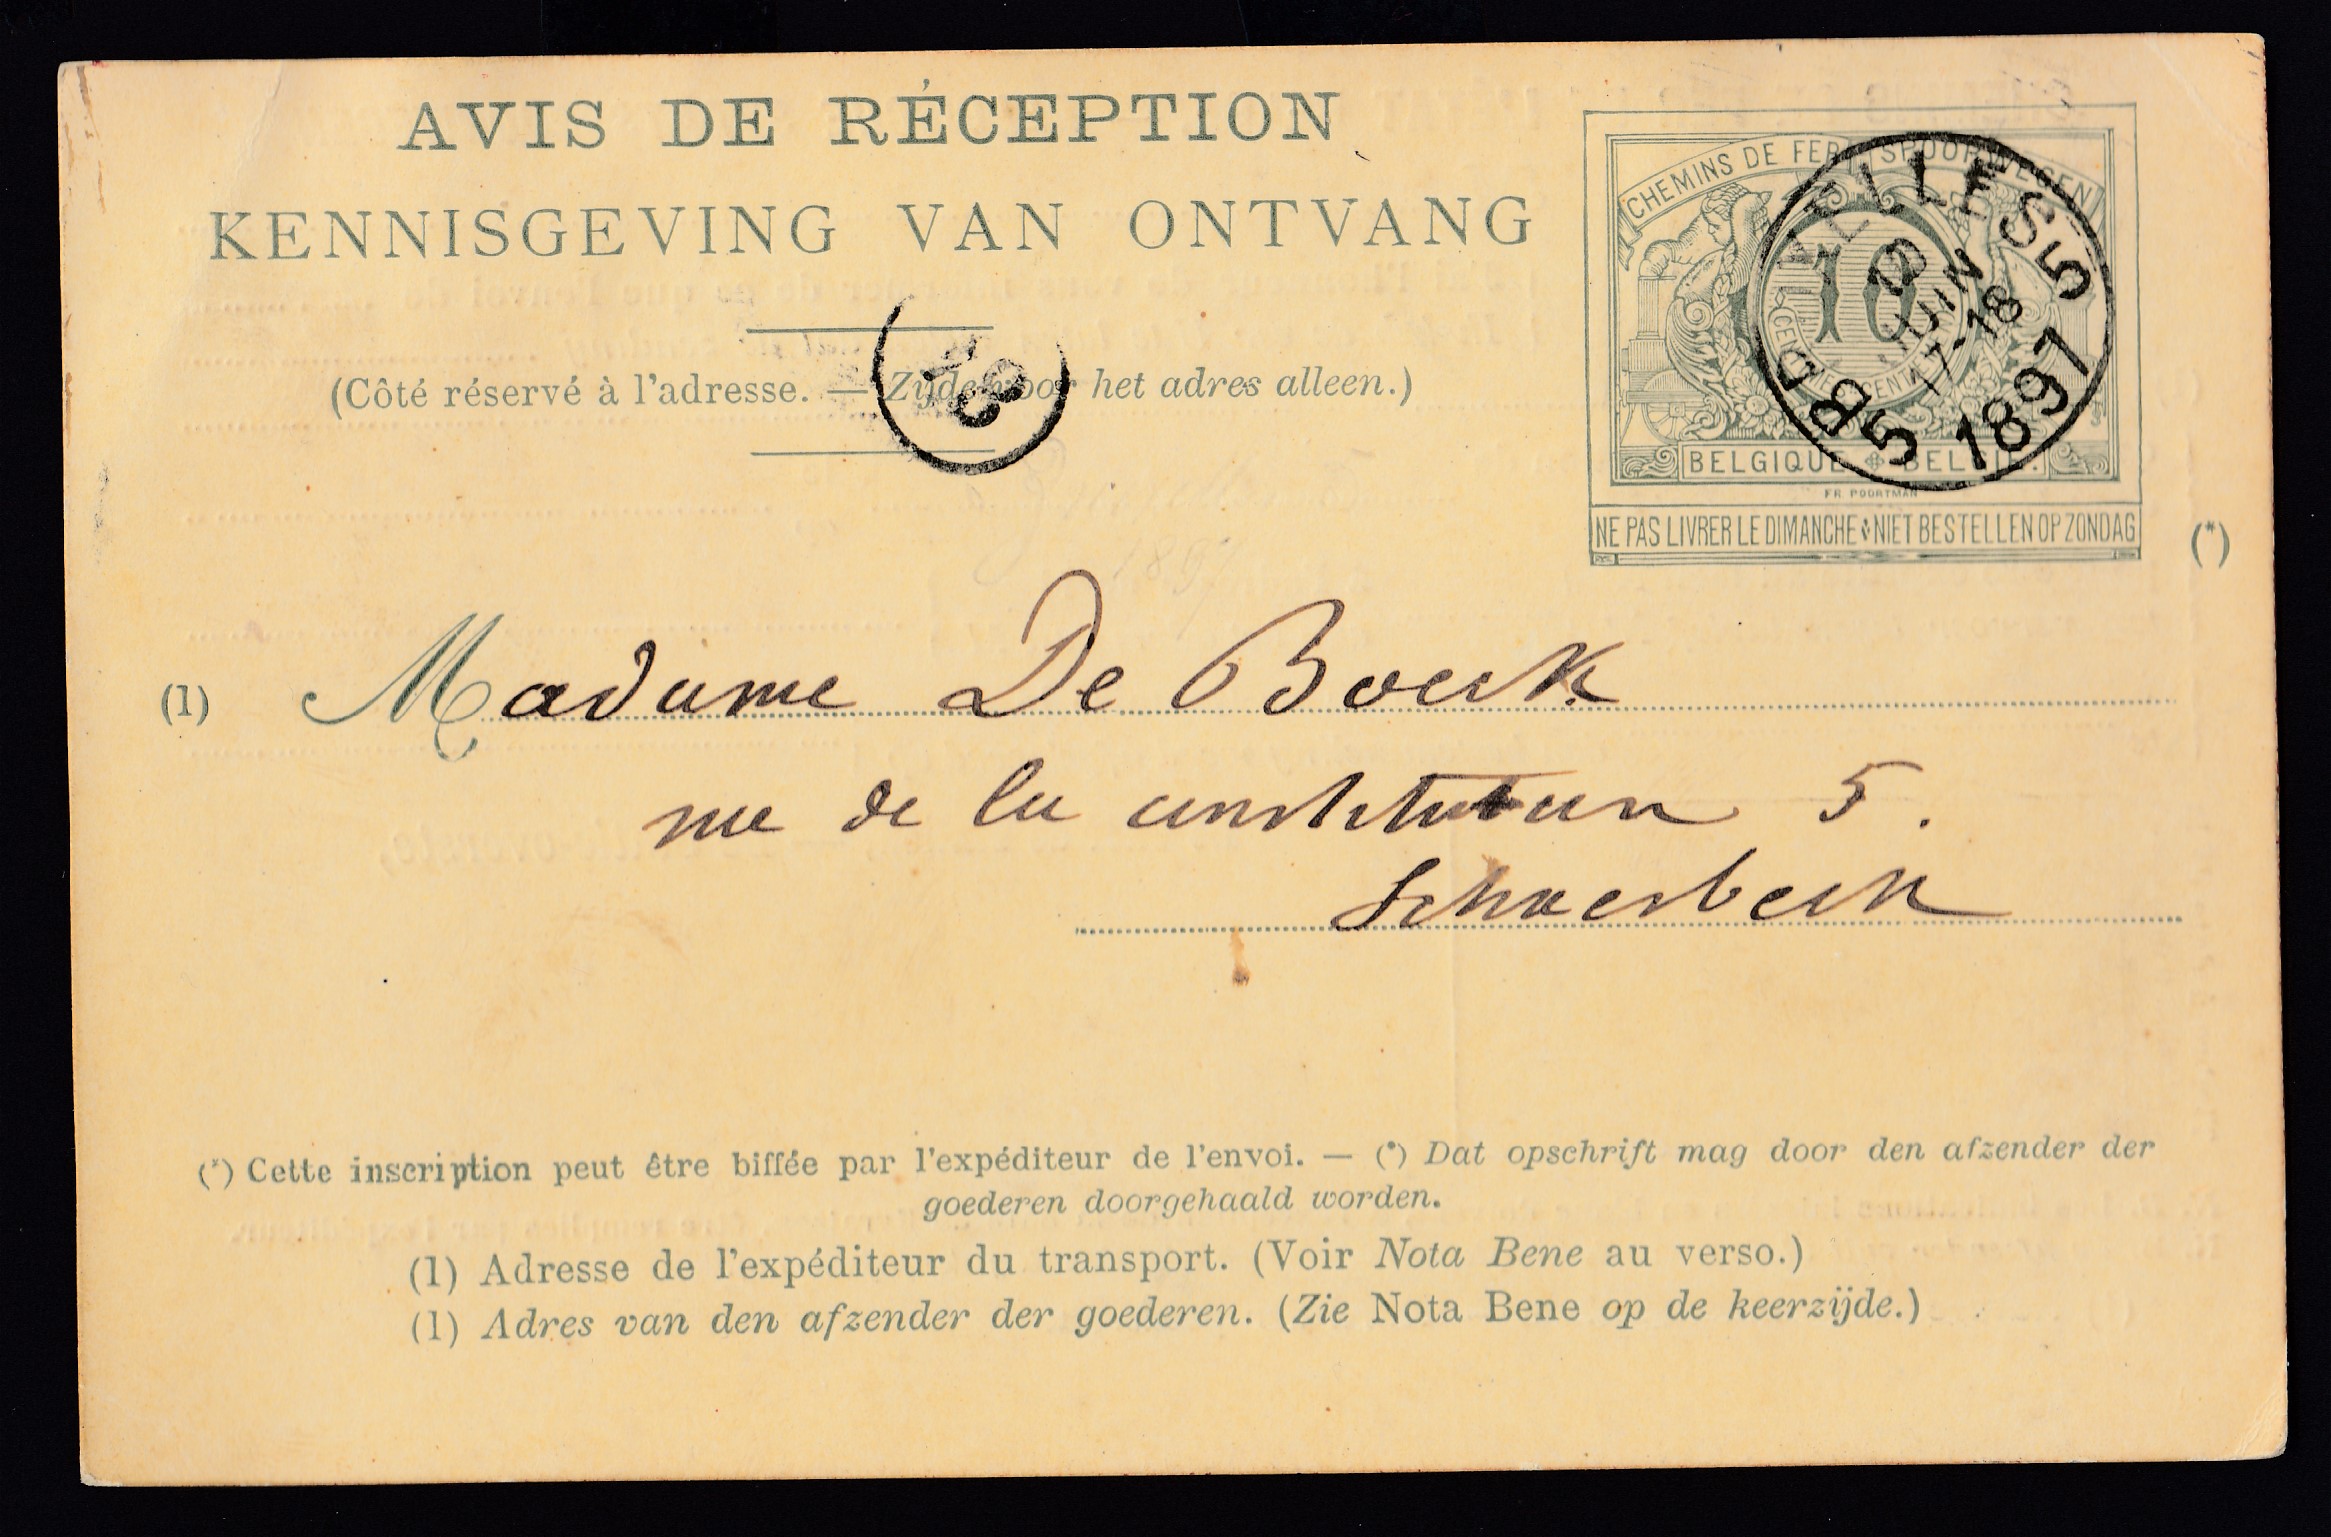 AVIS DE RÉCEPTION
KENNISGEVING VAN ONTVANG
(Côté réservé à l'adresse. — Zijde voor het adres alleen.)
CHEMINS DE FER SPOORWEGEN
10
BELGIQUE BELGIË.
FR. POORTMAN
NE PAS LIVRER LE DIMANCHE NIET BESTELLEN OP ZONDAG (*)
BRUXELLES 5
8 JUIN
17-18
1897
5
(1) Madame De Boeck
rue de la constitution 5.
Schaerbeek
(*) Cette inscription peut être biffée par l'expéditeur de l'envoi. — (*) Dat opschrift mag door den afzender der
goederen doorgehaald worden.
(1) Adresse de l'expéditeur du transport. (Voir Nota Bene au verso.)
(1) Adres van den afzender der goederen. (Zie Nota Bene op de keerzijde.)